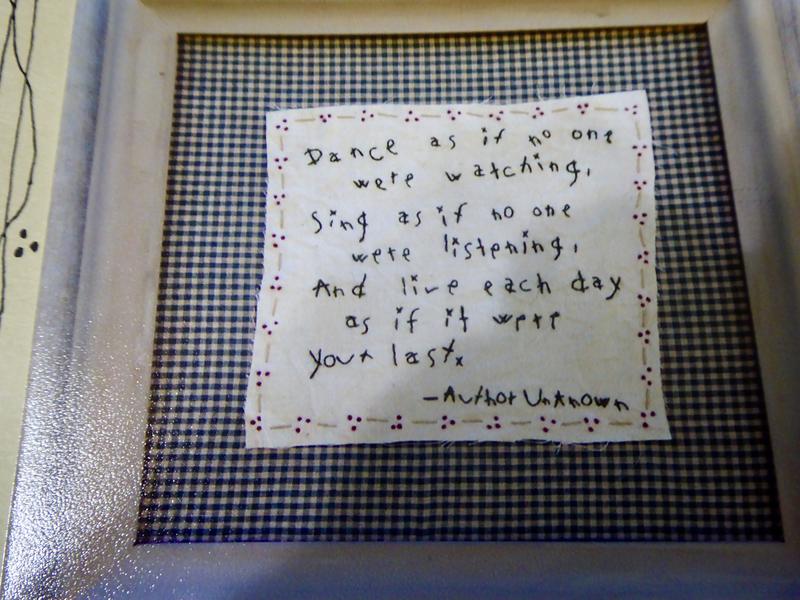 Dance as if no one
were watching,
Sing as if no one
were listening,
And live each day
as if it were
your last.
-Author Unknown